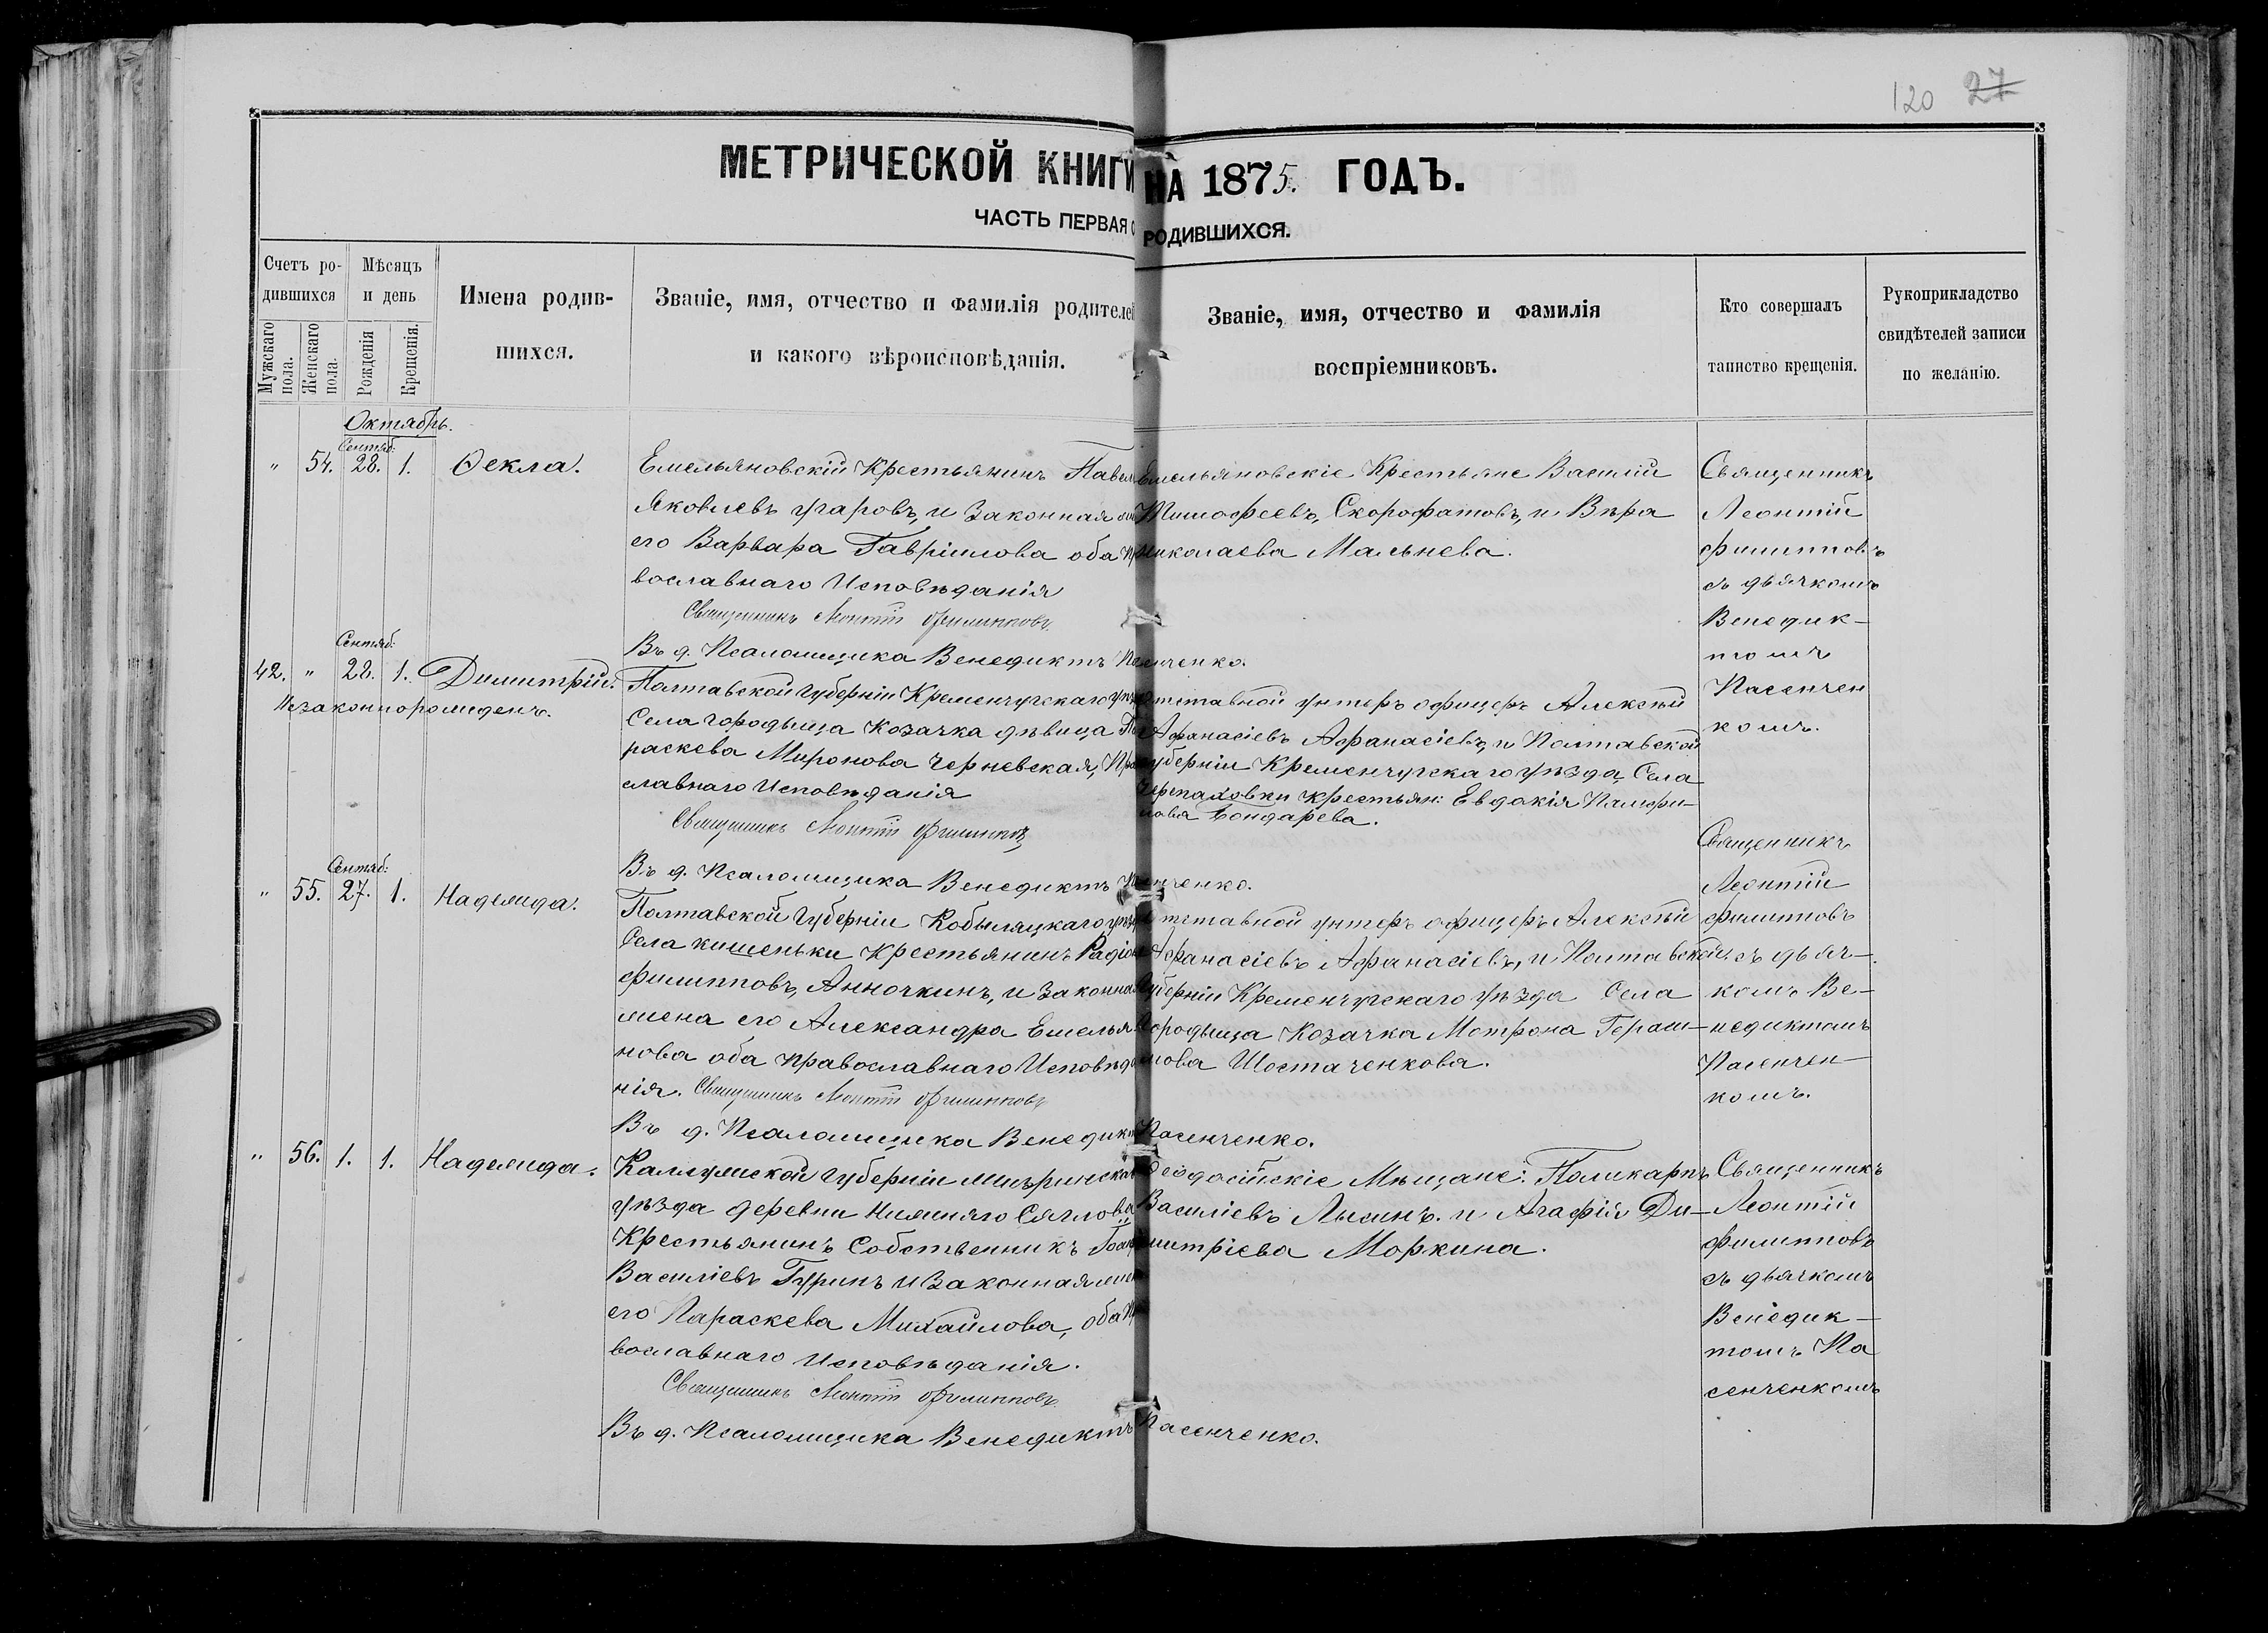 120 27
МЕТРИЧЕСКОЙ КНИГИ НА 1875. ГОДЪ.
ЧАСТЬ ПЕРВАЯ О РОДИВШИХСЯ.
Счетъ ро-
дившихся
Мужскаго пола.
Женскаго пола.
Мѣсяцъ
и день
Рожденія
Крещенія.
Имена родив-
шихся.
Званіе, имя, отчество и фамилія родителей
и какого вѣроисповѣданія.
Званіе, имя, отчество и фамилія
воспріемниковъ.
Кто совершалъ
таинство крещенія.
Рукоприкладство
свидѣтелей записи
по желанію.
Октябрь.
Сентяб:
" 54. 28. 1. Ѳекла.
Емельяновскій Крестьянинъ Павел
Яковлевъ Угаровъ, и Законная
его Варвара Гавріилова оба Пр
вославнаго Исповѣданія
Священникъ Леонтій Филипповъ
Въ д. Псаломщика Венедиктъ Пасенченко.
Емельяновскіе Крестьяне Василій
Тимофеевъ, Скорофатовъ, и Вѣра
Николаева Мальнева.
Священникъ
Леонтій
Филипповъ
съ дьячкомъ
Венедик-
томъ
Пасенчен
комъ.
Сентяб:
42. " 28. 1. Димитрій.
Незаконнорожденъ.
Полтавской Губерніи Кременчугскаго уѣз
Села Городыща Козачка дѣвица Па
раскева Миронова Черневская, Пра
славнаго Исповѣданія
Священникъ Леонтій Филипповъ
Въ д. Псаломщика Венедиктъ Пасенченко.
Отставной унтеръ офицеръ Алексѣй
Афанасіевъ Афанасіевъ, и Полтавской
Губерніи Кременчугскаго уѣзда Села
Черепаховки крестьян: Евдокія Памфи-
лова Бондарева.
Сентяб:
" 55. 27. 1. Надежда.
Полтавской Губерніи Кобыляцкаго уѣз
Села Кишеньки Крестьянинъ Радіон
Филипповъ, Анночкинъ, и Законная
жена его Александра Емелья
нова оба Православнаго Исповѣда
нія. Священникъ Леонтій Филипповъ
Въ д. Псаломщика Венедикт Пасенченко.
Отставной унтеръ офицеръ Алексѣй
Афанасіевъ Афанасіевъ, и Полтавской
Губерніи Кременчугскаго уѣзда Села
Городыща Козачка Мотрона Гераси-
мова Шостаченкова.
Священникъ
Леонтій
Филипповъ
съ дьяч-
комъ Ве-
недиктомъ
Пасенчен-
комъ.
" 56. 1. 1. Надежда.
Каллужской Губерніи
уѣзда деревни Нижняго
Крестьянинъ Собственникъ Іоан
Василіевъ Гуринъ и Законная жен
его Параскева Михайлова, оба Пр
вославнаго Исповѣданія.
Священникъ Леонтій Филипповъ
Въ д. Псаломщика Венедиктъ Пасенченко.
Ѳеодосійскіе Мѣщане: Поликарпъ
Василіевъ Лысинъ. и Агафія Ди-
митріева Моркина.
Священникъ
Леонтій
Филипповъ
съ дьячкомъ
Венедик-
томъ Па
сенченкомъ